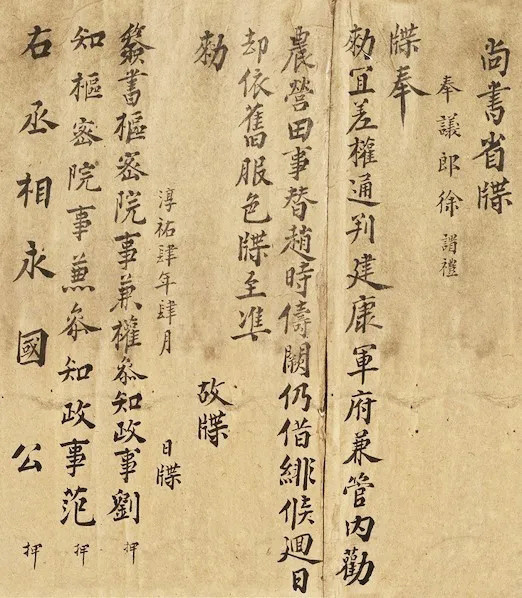 尚書省牒
奉議郎徐謂禮
牒奉
勑宜差權通判建康軍府兼管內勸
農營田事替趙時儔闕仍借緋候迴日
却依舊服色牒至准
勑 故牒
淳祐肆年肆月 日牒
簽書樞密院事兼權叅知政事劉 押
知樞密院事兼叅知政事范 押
右丞相永國公 押